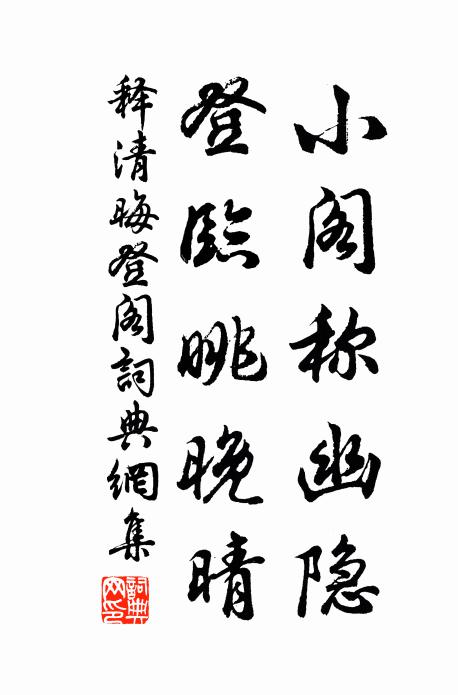 小阁称幽隐
登临眺晚晴
释清晦登阁詞典網集
詞典网印